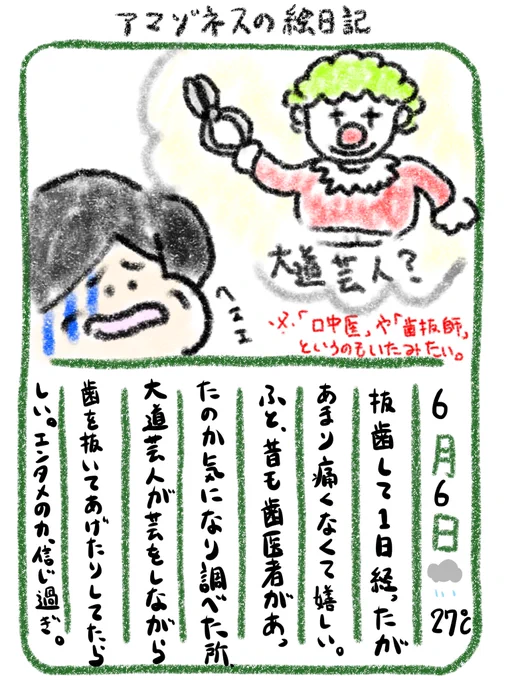 アマゾネスの絵日記
大道芸人?
ヘェェ
※「口中医」や「歯抜師」
というのもいたみたい。
6月6日 27℃
抜歯して1日経ったが
あまり痛くなくて嬉しい。
ふと、昔も歯医者があっ
たのか気になり調べた所
大道芸人が芸をしながら
歯を抜いてあげたりしてたら
しい。エンタメの力、信じ過ぎ。